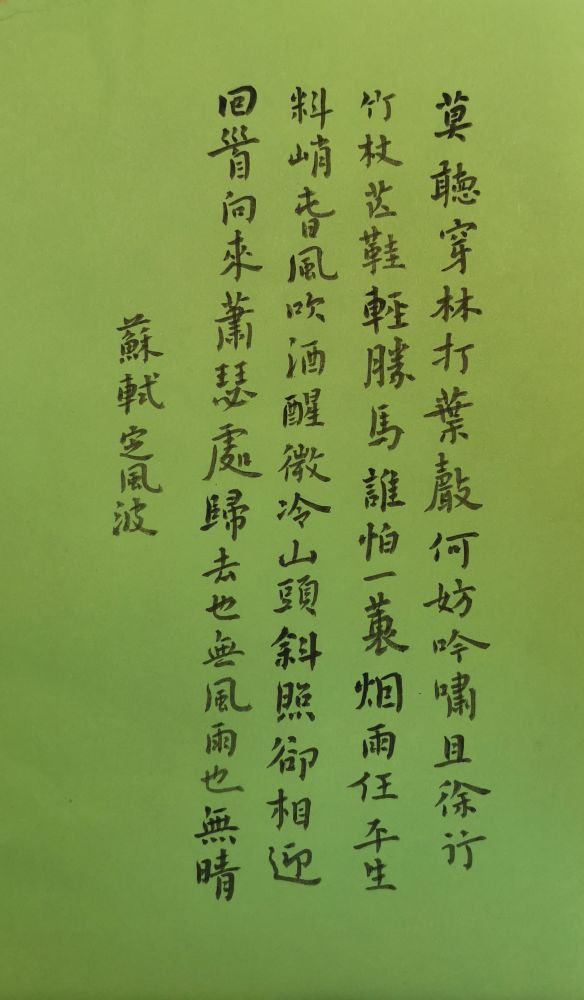 莫聽穿林打葉聲何妨吟嘯且徐行
竹杖芒鞋輕勝馬誰怕一蓑烟雨任平生
料峭春風吹酒醒微冷山頭斜照卻相迎
回首向來蕭瑟處歸去也無風雨也無晴
蘇軾定風波